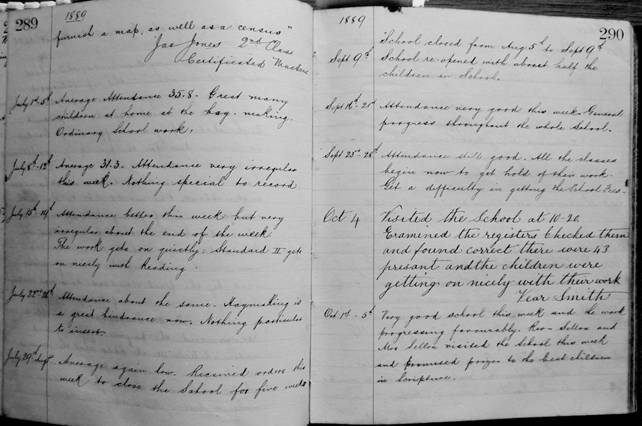 289
1889
furnish a map, as well as a census"
Jas Jones 2nd Class
Certificated Teacher
July 1st-5th Average Attendance 35.8. Great many
children at home at the hay. making.
Ordinary School work.
July 8th-12th Average 31.3. Attendance very irregular
this week. Nothing special to record
July 15th Attendance better this week but very
irregular about the end of the week
The work gets on quietly. Standard II gets
on nicely with Reading.
July 22nd Attendance about the same. Haymaking is
a great hindrance now. Nothing particular
to insert.
July 29th Average again low. Received orders this
week to close the School for five weeks
1889
290
School closed from Aug 5th to Sept 9th
Sept 9th School re-opened with about half the
children in School.
Sept 16th-21st Attendance very good this week. General
progress throughout the whole School.
Sept 25th-28th Attendance still good. All the classes
begin now to get hold of their work
Get a difficulty in getting the School Fees.
Oct 4 Visited the School at 10-20
Examined the registers Checked them
and found correct there were 43
present and the children were
getting on nicely with their work
Smith
Oct 1st-5th Very good school this week and the work
progressing favourably. Rev. and
Mrs visited the School this week
and promised prizes to the best children
in Scripture.